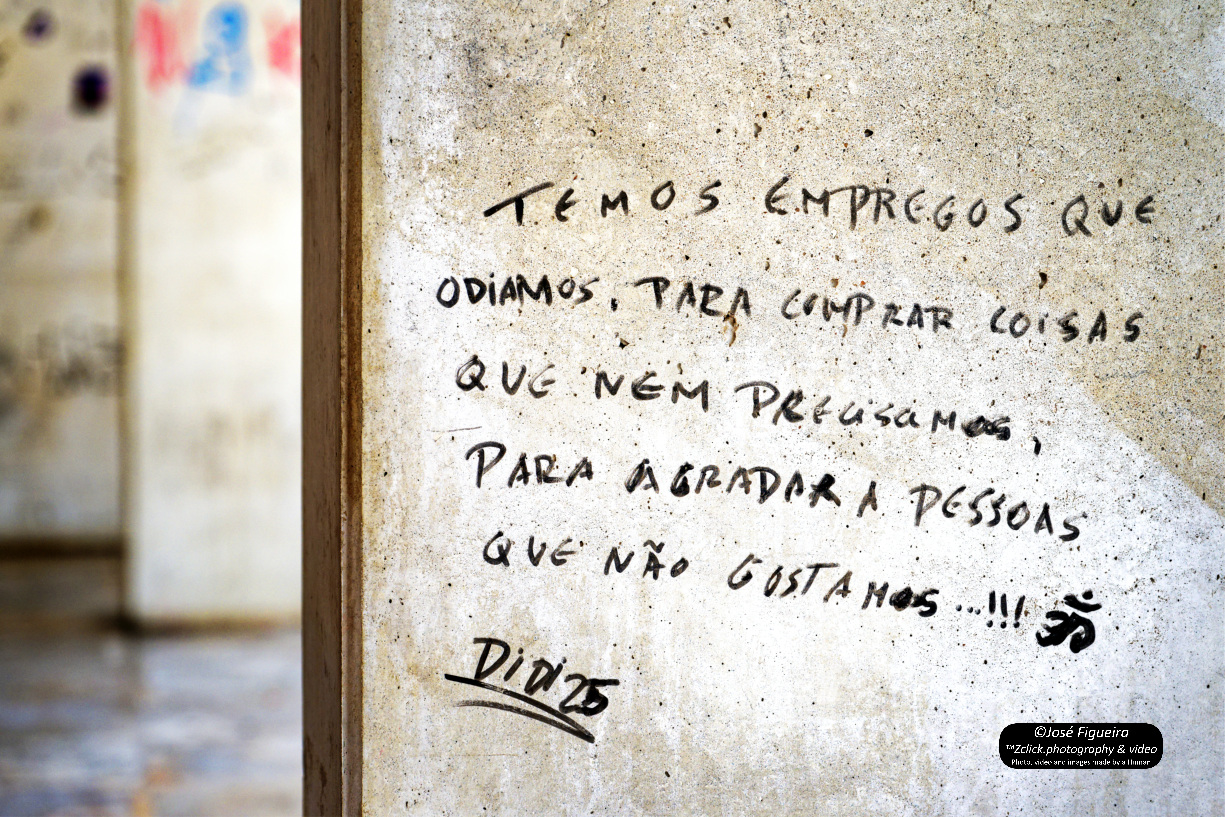 TEMOS EMPREGOS QUE
ODIAMOS, PARA COMPRAR COISAS
QUE NEM PRECISAMOS,
PARA AGRADAR A PESSOAS
QUE NÃO GOSTAMOS...!!! ॐ
DIDI25
©José Figueiro
™Zclick.photography & video
Photo, video and images made by a Human